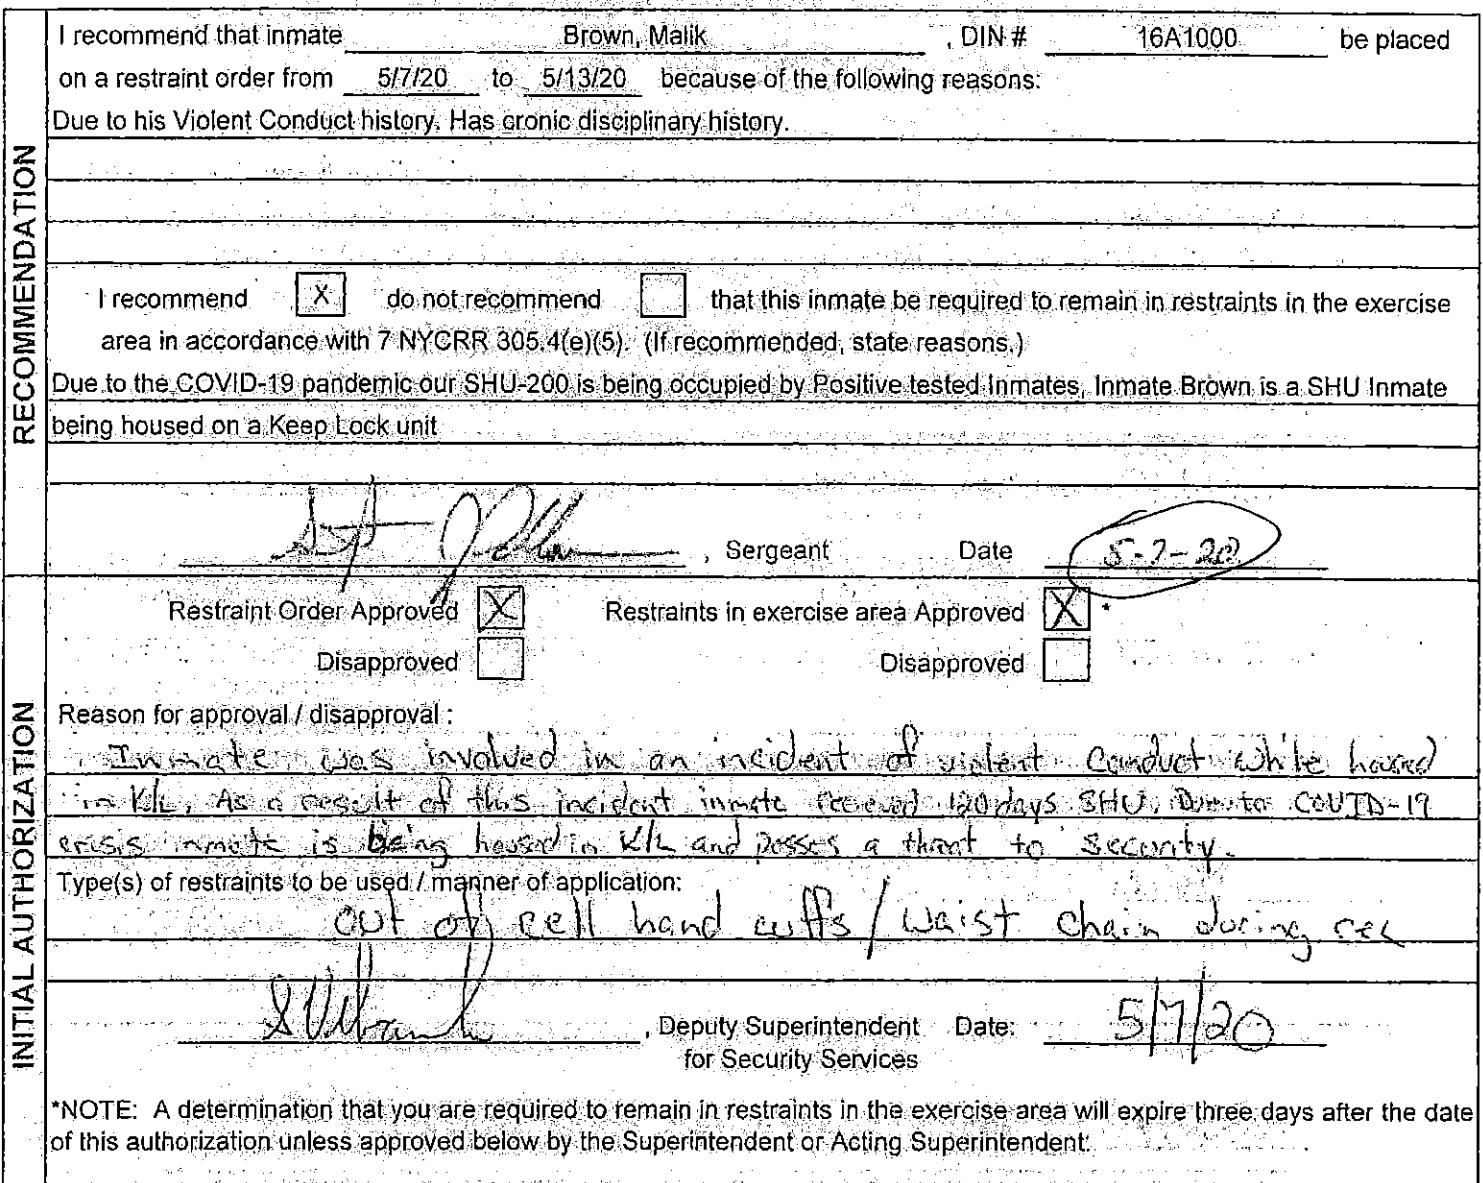 I recommend that inmate Brown, Malik , DIN # 16A1000 be placed
on a restraint order from 5/7/20 to 5/13/20 because of the following reasons:
Due to his Violent Conduct history. Has cronic disciplinary history.
RECOMMENDATION
I recommend X do not recommend that this inmate be required to remain in restraints in the exercise
area in accordance with 7 NYCRR 305.4(e)(5). (If recommended, state reasons.)
Due to the COVID-19 pandemic our SHU-200 is being occupied by Positive tested Inmates, Inmate Brown is a SHU Inmate
being housed on a Keep Lock unit
Sgt , Sergeant Date 5-7-20
Restraint Order Approved X Restraints in exercise area Approved X *
Disapproved Disapproved
INITIAL AUTHORIZATION
Reason for approval / disapproval :
Inmate was involved in an incident of violent conduct while housed
in K/L. As a result of this incident inmate received 120 days SHU. Due to COVID-19
crisis inmate is being housed in K/L and posses a threat to security.
Type(s) of restraints to be used / manner of application:
out of cell hand cuffs / waist chain during rec
, Deputy Superintendent Date: 5/7/20
for Security Services
*NOTE: A determination that you are required to remain in restraints in the exercise area will expire three days after the date
of this authorization unless approved below by the Superintendent or Acting Superintendent.